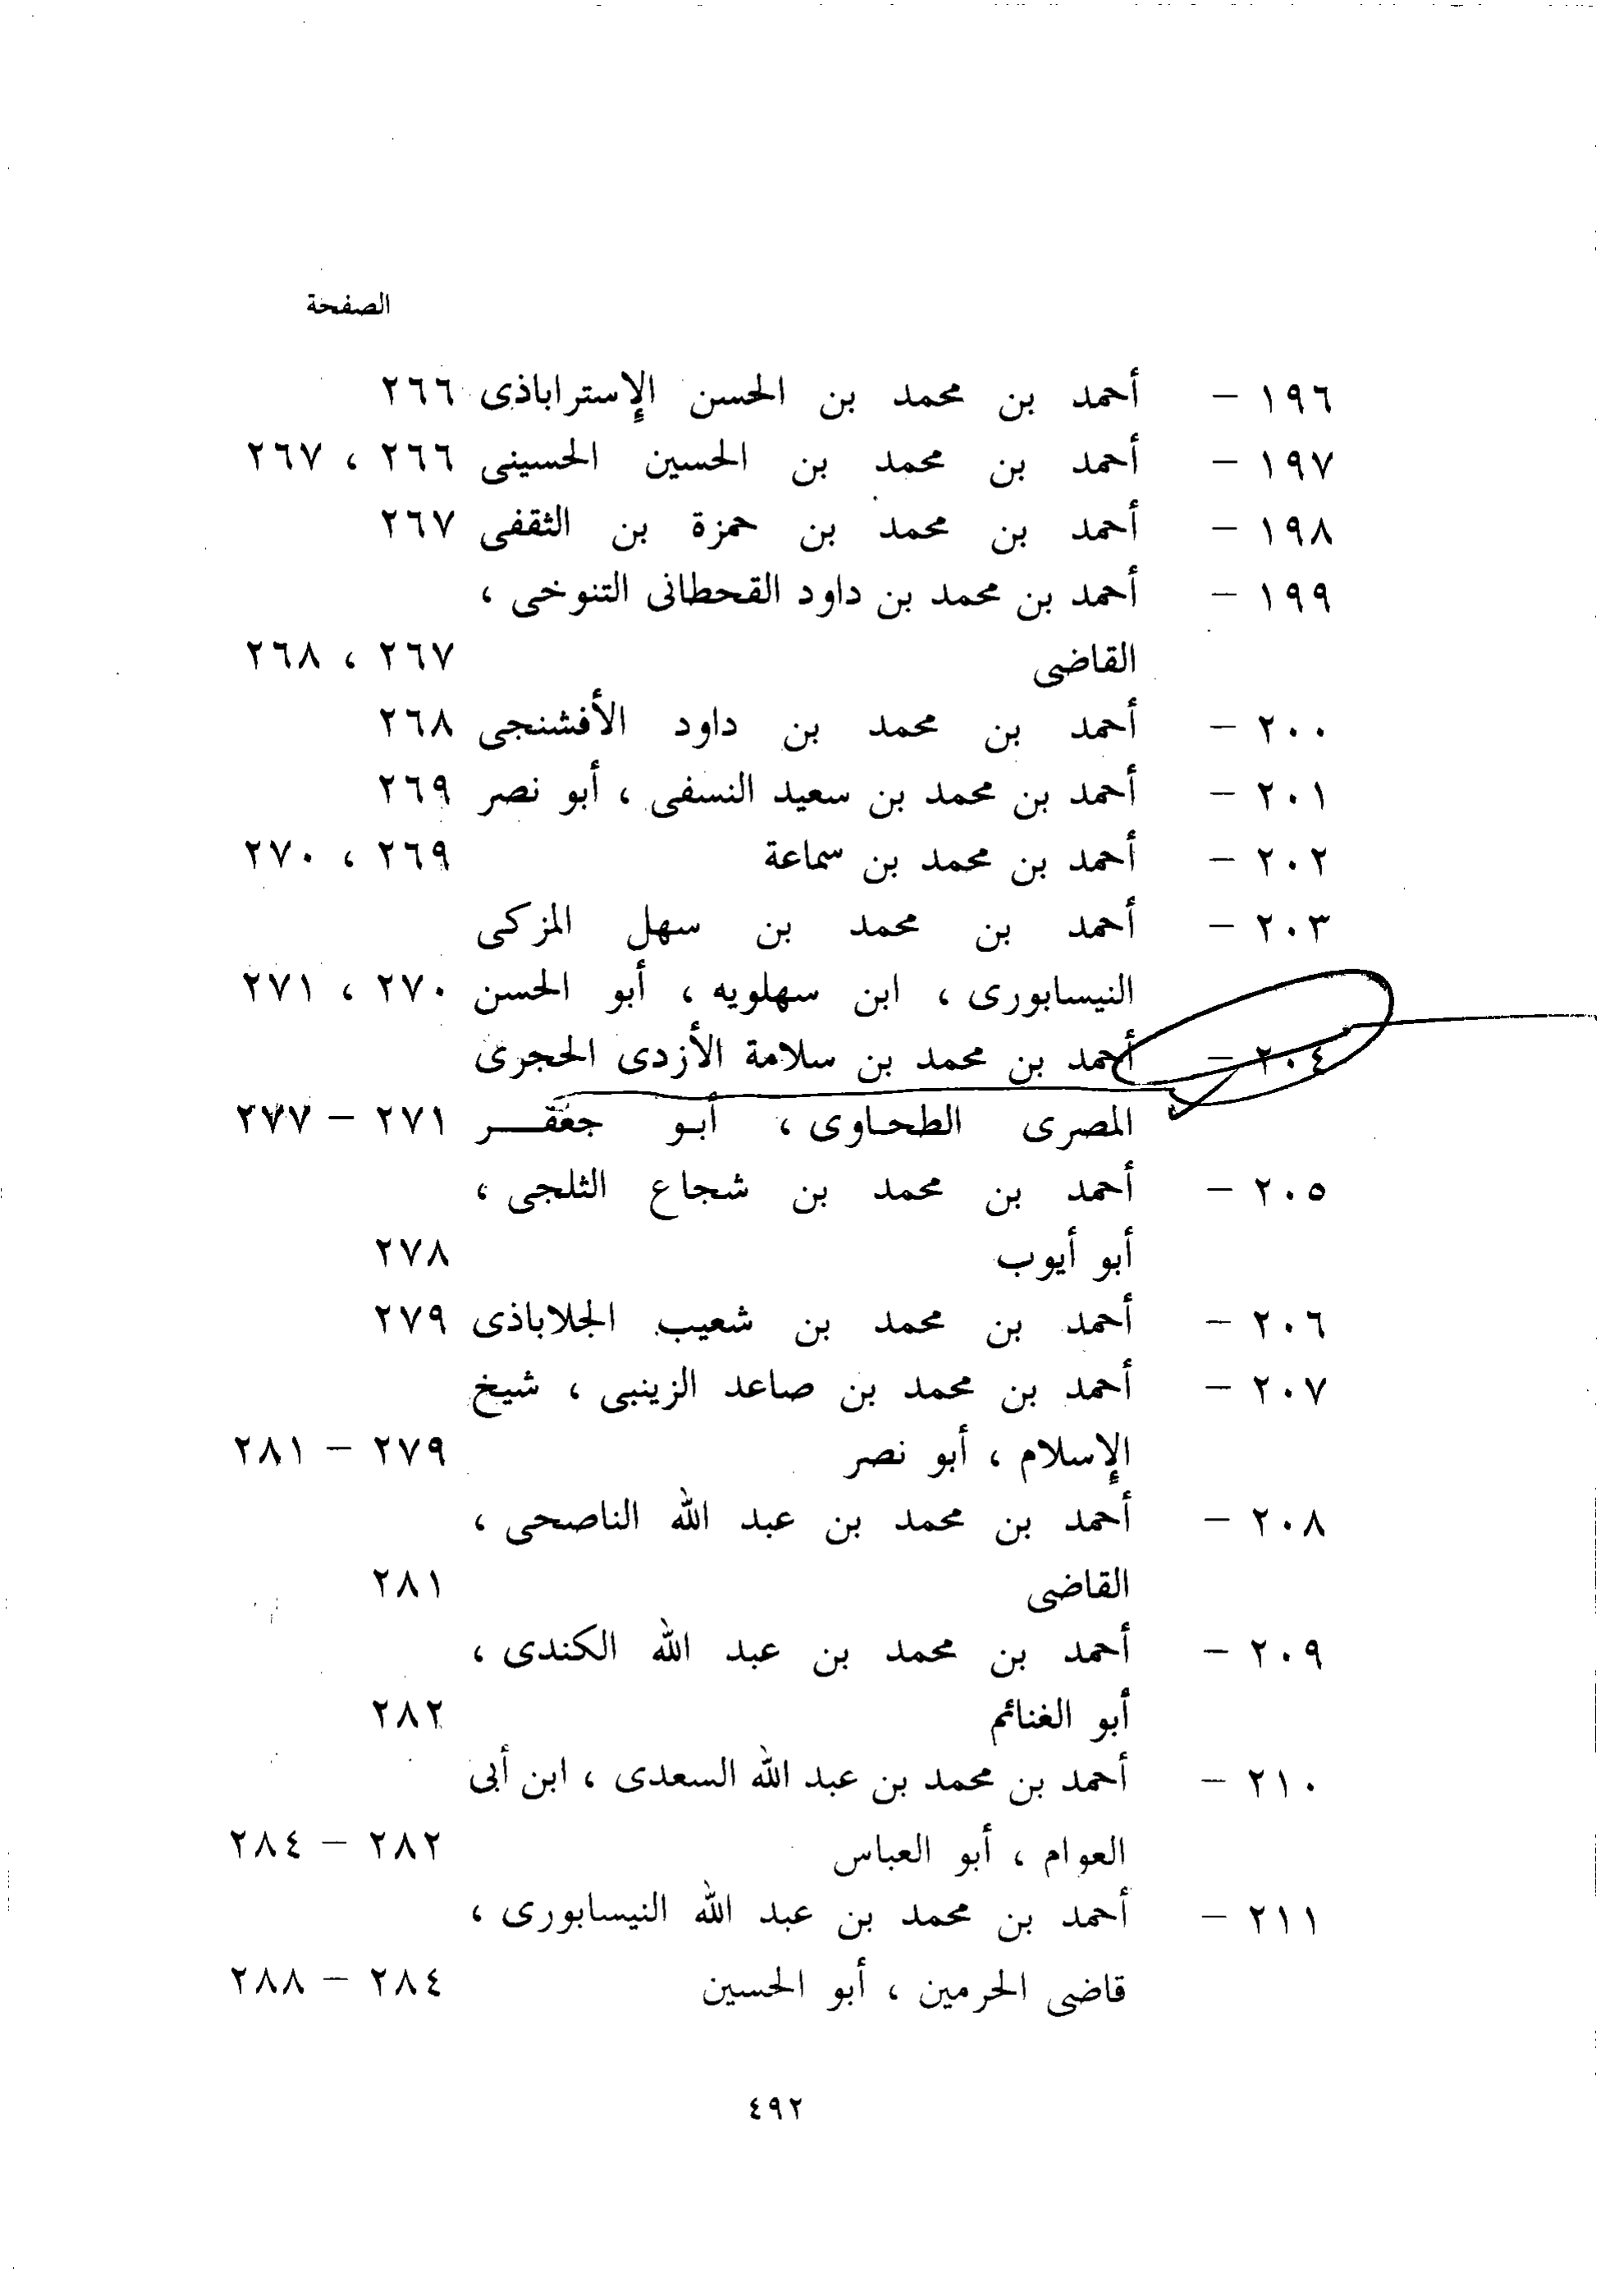 الصفحة
١٩٦ – أحمد بن محمد بن الحسن الإستراباذى ٢٦٦
١٩٧ – أحمد بن محمد بن الحسين الحسينى ٢٦٦ ، ٢٦٧
١٩٨ – أحمد بن محمد بن حمزة بن الثقفى ٢٦٧
١٩٩ – أحمد بن محمد بن داود القحطانى التنوخى ،
القاضى ٢٦٧ ، ٢٦٨
٢٠٠ – أحمد بن محمد بن داود الأفشنجى ٢٦٨
٢٠١ – أحمد بن محمد بن سعيد النسفى ، أبو نصر ٢٦٩
٢٠٢ – أحمد بن محمد بن سماعة ٢٦٩ ، ٢٧٠
٢٠٣ – أحمد بن محمد بن سهل المزكى
النيسابورى ، ابن سهلويه ، أبو الحسن ٢٧٠ ، ٢٧١
٢٠٤ – أحمد بن محمد بن سلامة الأزدى الحجرى
المصرى الطحاوى ، أبو جعفر ٢٧١ – ٢٧٧
٢٠٥ – أحمد بن محمد بن شجاع الثلجى ،
أبو أيوب ٢٧٨
٢٠٦ – أحمد بن محمد بن شعيب الجلاباذى ٢٧٩
٢٠٧ – أحمد بن محمد بن صاعد الزينبى ، شيخ
الإسلام ، أبو نصر ٢٧٩ – ٢٨١
٢٠٨ – أحمد بن محمد بن عبد الله الناصحى ،
القاضى ٢٨١
٢٠٩ – أحمد بن محمد بن عبد الله الكندى ،
أبو الغنائم ٢٨٢
٢١٠ – أحمد بن محمد بن عبد الله السعدى ، ابن أبى
العوام ، أبو العباس ٢٨٢ – ٢٨٤
٢١١ – أحمد بن محمد بن عبد الله النيسابورى ،
قاضى الحرمين ، أبو الحسين ٢٨٤ – ٢٨٨
٤٩٢